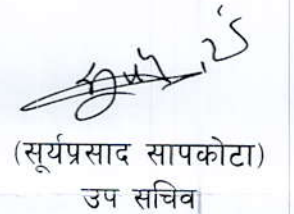 (सूर्यप्रसाद सापकोटा)
उप सचिव